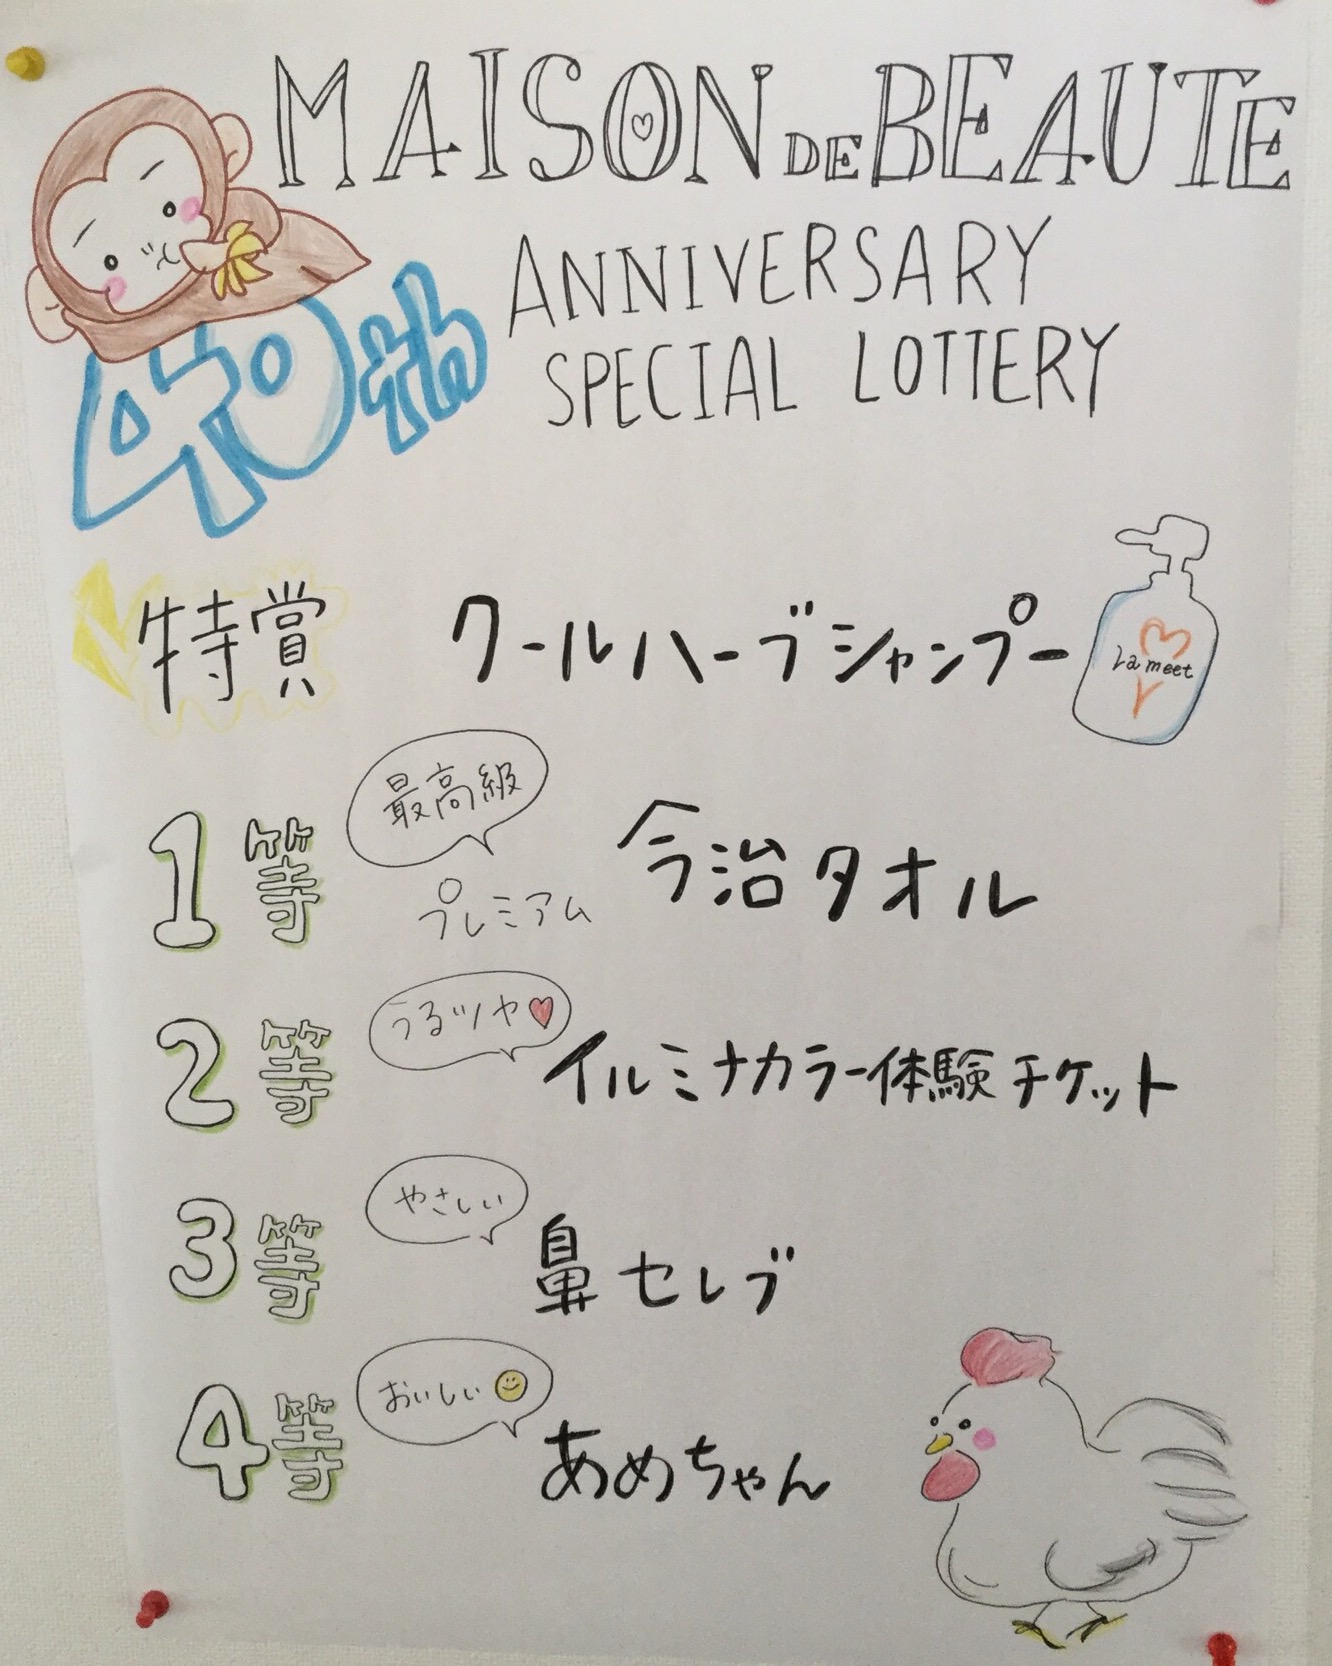 MAISON DE BEAUTE
40th ANNIVERSARY
SPECIAL LOTTERY
特賞 クールハーブシャンプー
La meet
1等 最高級 プレミアム 今治タオル
2等 うるツヤ♥ イルミナカラー体験チケット
3等 やさしい 鼻セレブ
4等 おいしい あめちゃん